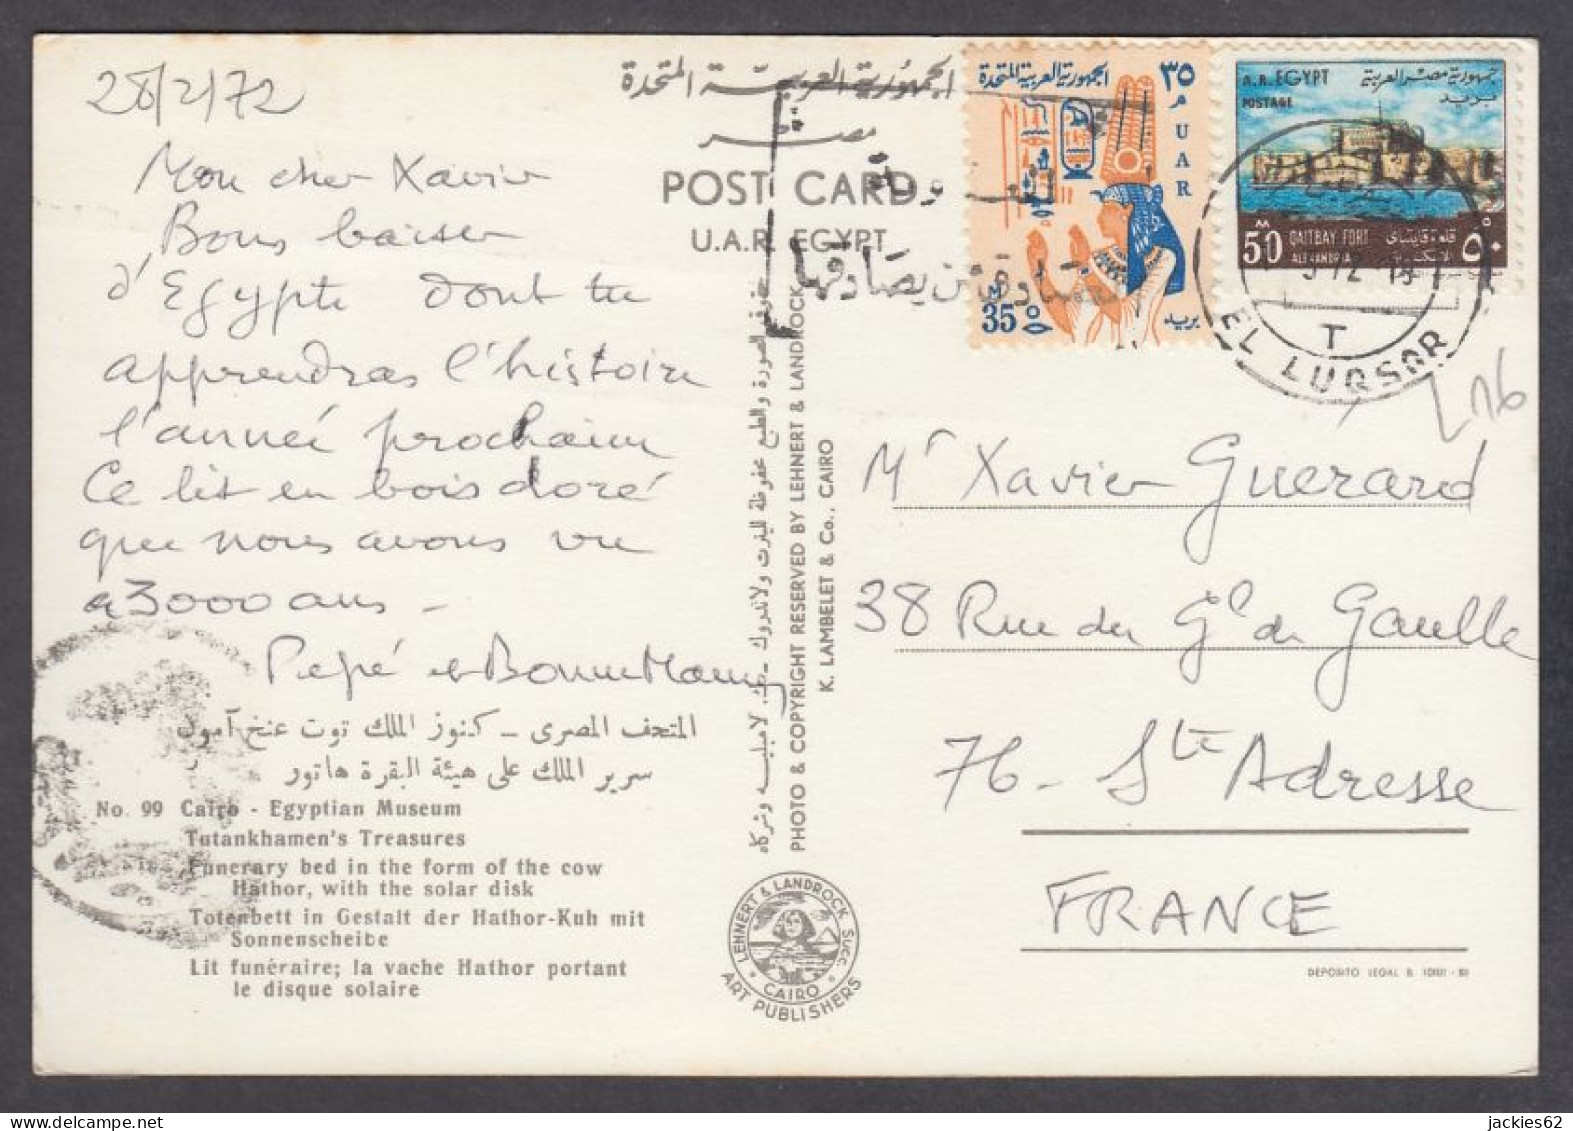 28/2/72
Mon cher Xavier
Bons baiser
d'Egypte dont tu
apprendras l'histoire
l'année prochain
Ce lit en bois doré
que nous avons vu
a 3000 ans -
Pepé et Bonne Mamy
المتحف المصرى - كنوز الملك توت عنخ آمون
سرير الملك على هيئة البقرة هاتور
No. 99 Cairo - Egyptian Museum
Tutankhamen's Treasures
Funerary bed in the form of the cow
Hathor, with the solar disk
Totenbett in Gestalt der Hathor-Kuh mit
Sonnenscheibe
Lit funéraire; la vache Hathor portant
le disque solaire
الجمهورية العربية المتحدة
مصر
POST CARD
U.A.R. EGYPT
PHOTO & COPYRIGHT RESERVED BY LEHNERT & LANDROCK
K. LAMBELET & Co., CAIRO
LEHNERT & LANDROCK SUCC.
CAIRO
ART PUBLISHERS
الجمهورية العربية المتحدة
٣٥
UAR
35
بريد
A.R. EGYPT
POSTAGE
جمهورية مصر العربية
بريد
50
QAITBAY FORT
ALEXANDRIA
قلعة قايتباى
٥٠
T
EL LUQSOR
76
Mr Xavier Guerard
38 Rue du Gl de Gaulle
76 - Ste Adresse
FRANCE
jackies62